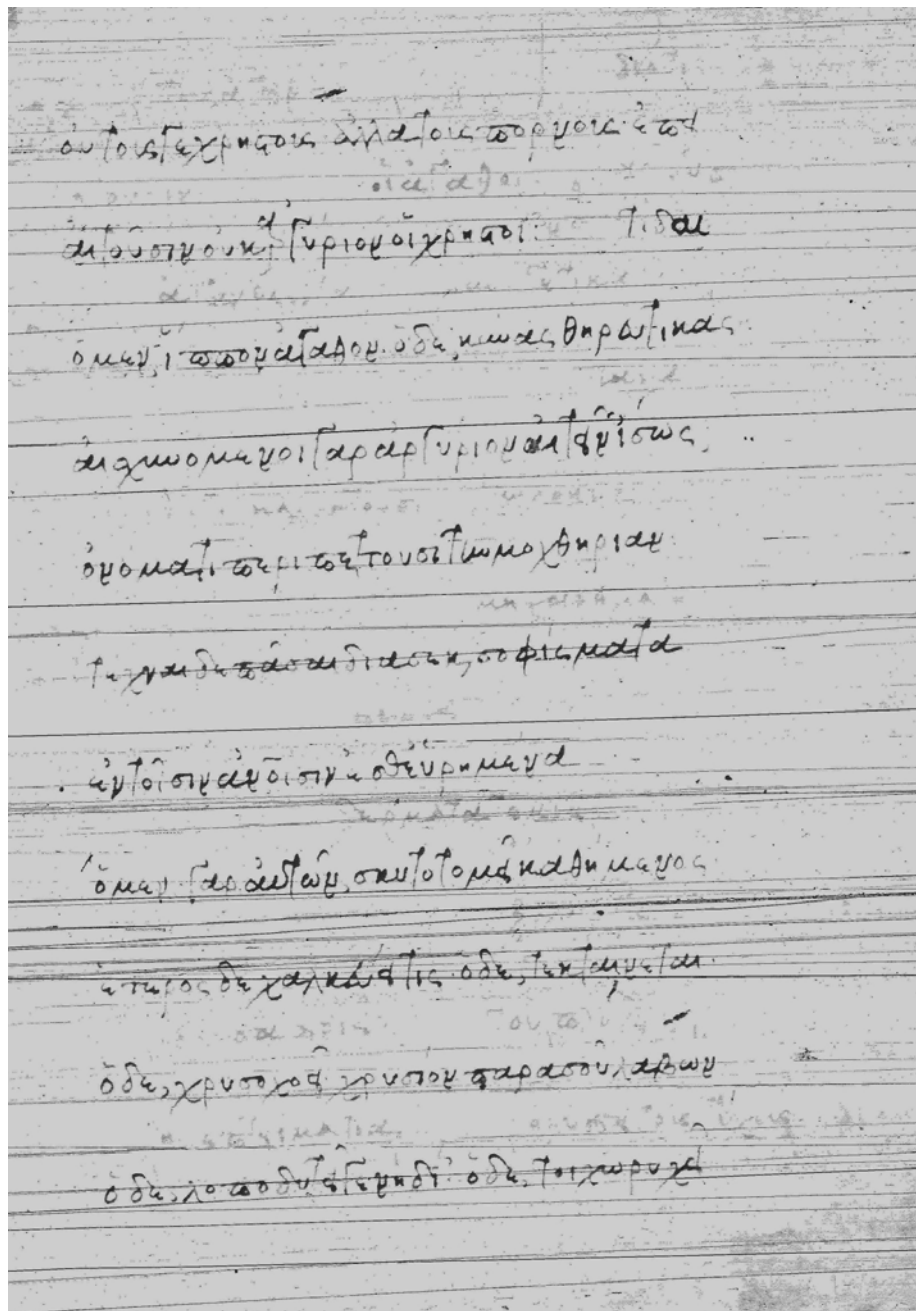 οὐ τοῖς γε χρηστοῖς ἀλλὰ τοῖς πόρνοις ἐπεὶ
αἰτοῦσιν οὐκ ἀργύριον οἱ χρηστοί: τί δαί
ὁ μὲν, ἵππον ἀγαθὸν. ὁ δὲ, κύνας θηρευτικάς
αἰσχυνόμενοι γὰρ ἀργύριον αἰτεῖν ἴσως
ὀνόματι περιπέττουσι τὴν μοχθηρίαν
τέχναι δὲ πᾶσαι διὰ σὲ κ, σοφίσματα
ἐν τοῖσιν ἀνοισιν ἐσθ εὑρημένα
ὁ μὲν γὰρ αὐτῶν, σκυτοτομεῖ καθήμενος
ἕτερος δὲ χαλκεύει τίς ὁ δὲ, τεκταίνεται.
ὁ δὲ, χρυσοχοεῖ χρυσίον παρὰ σοῦ λαβὼν
ὁ δὲ, λοποδυτεῖ γε νὴ δί' ὁ δὲ, τοιχωρυχεῖ